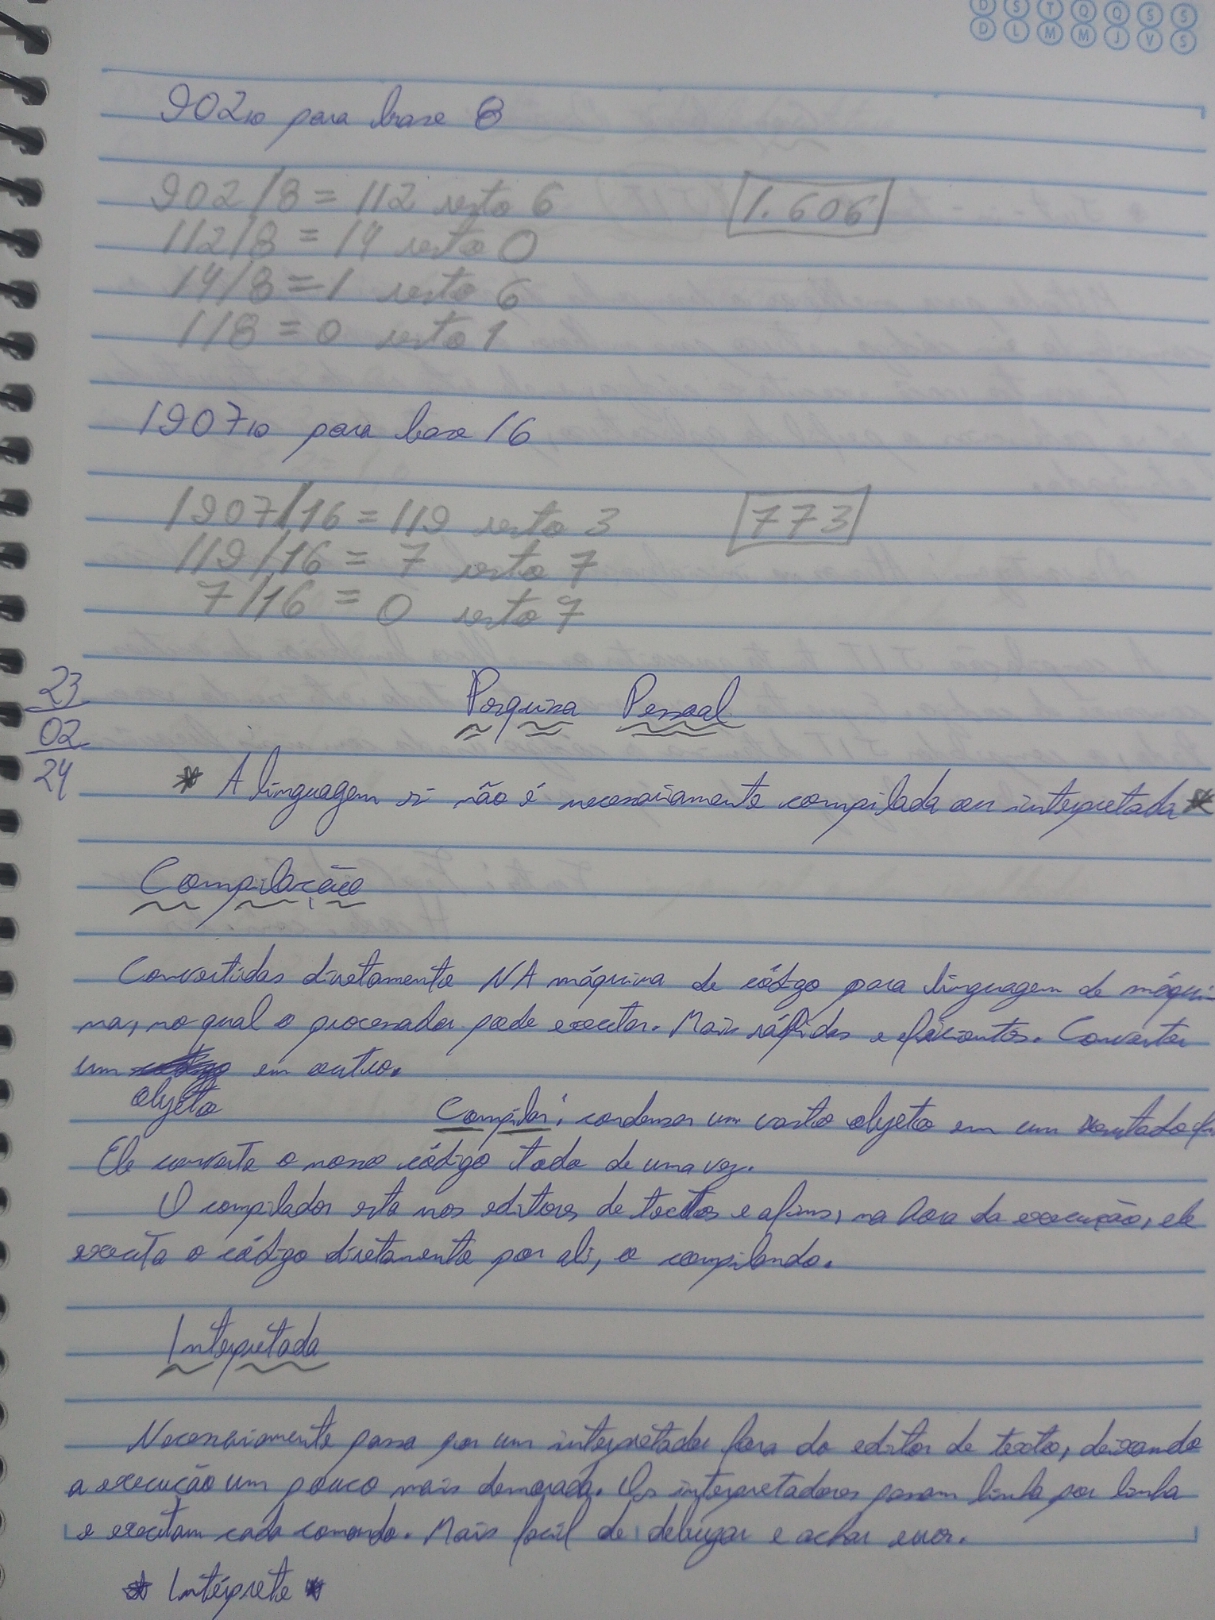 D S T Q Q S S
D L M M J V S
902₁₀ para base 8
902/8 = 112 resto 6
1.606
112/8 = 14 resto 0
14/8 = 1 resto 6
1/8 = 0 resto 1
1907₁₀ para base 16
1907/16 = 119 resto 3
773
119/16 = 7 resto 7
7/16 = 0 resto 7
23
02
24
Pesquisa Pessoal
* A linguagem si não é necessariamente compilada ou interpretada *
Compilação
Convertidas diretamente NA máquina de código para linguagem de máqui
na, no qual o processador pode executar. Mais rápidas e eficientes. Converter
um em outro.
objeto
Compilar: condensar um vasto objeto em um
Ele converte o nosso código todo de uma vez.
O compilador esta nos editores de textos e afins, na hora da execução, ele
executa o código diretamente por ali, o compilando.
Interpretada
Necessariamente passa por um interpretador fora do editor de texto, deixando
a execução um pouco mais demorada. Os interpretadores passam linha por linha
e executam cada comando. Mais facil de debugar e achar erros.
* Intérprete *